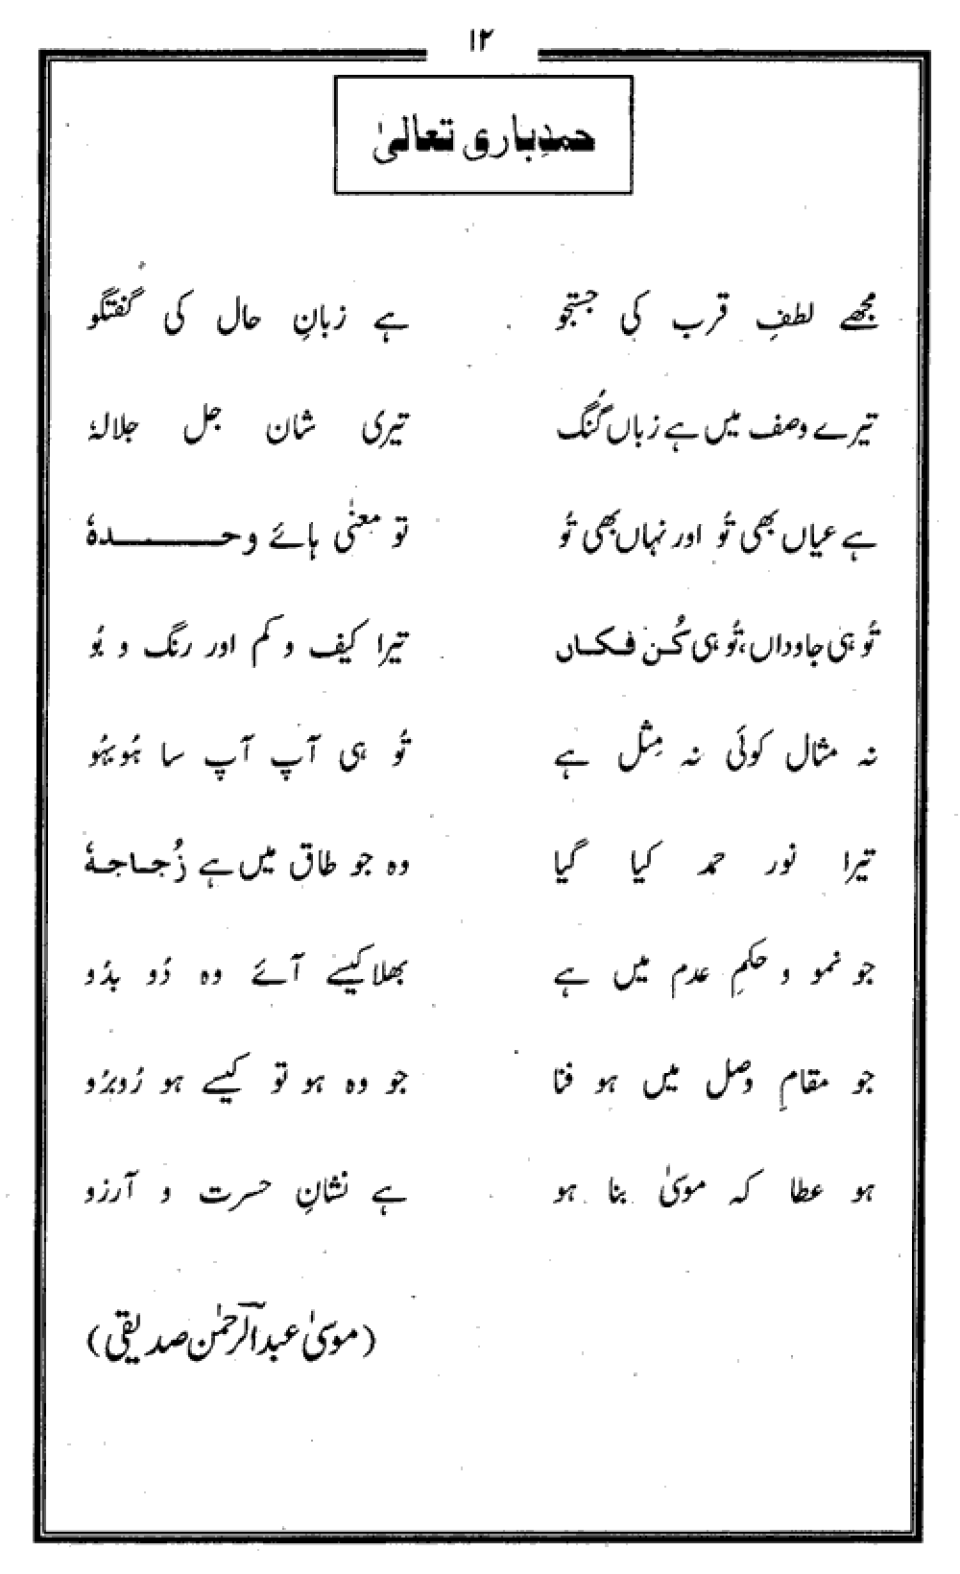 ۱۲
حمدِباری تعالیٰ
مجھے لطفِ قرب کی جستجو ہے زبانِ حال کی گفتگو
تیرے وصف میں ہے زباں گُنگ تیری شان جل جلالہٗ
ہے عیاں بھی تُو اور نہاں بھی تُو تو معنٰی ہائے وحدہٗ
تُو ہی جاوداں، تُو ہی کُن فکاں تیرا کیف و کم اور رنگ و بُو
نہ مثال کوئی نہ مِثل ہے تُو ہی آپ آپ سا ہُوبہُو
تیرا نور حمد کیا گیا وہ جو طاق میں ہے زُجاجہٗ
جو نمو و حکمِ عدم میں ہے بھلا کیسے آئے وہ دُو بدُو
جو مقامِ وصل میں ہو فنا جو وہ ہو تو کیسے ہو رُوبرُو
ہو عطا کہ موسیٰ بنا ہو ہے نشانِ حسرت و آرزو
(موسیٰ عبدالرحمٰن صدیقی)